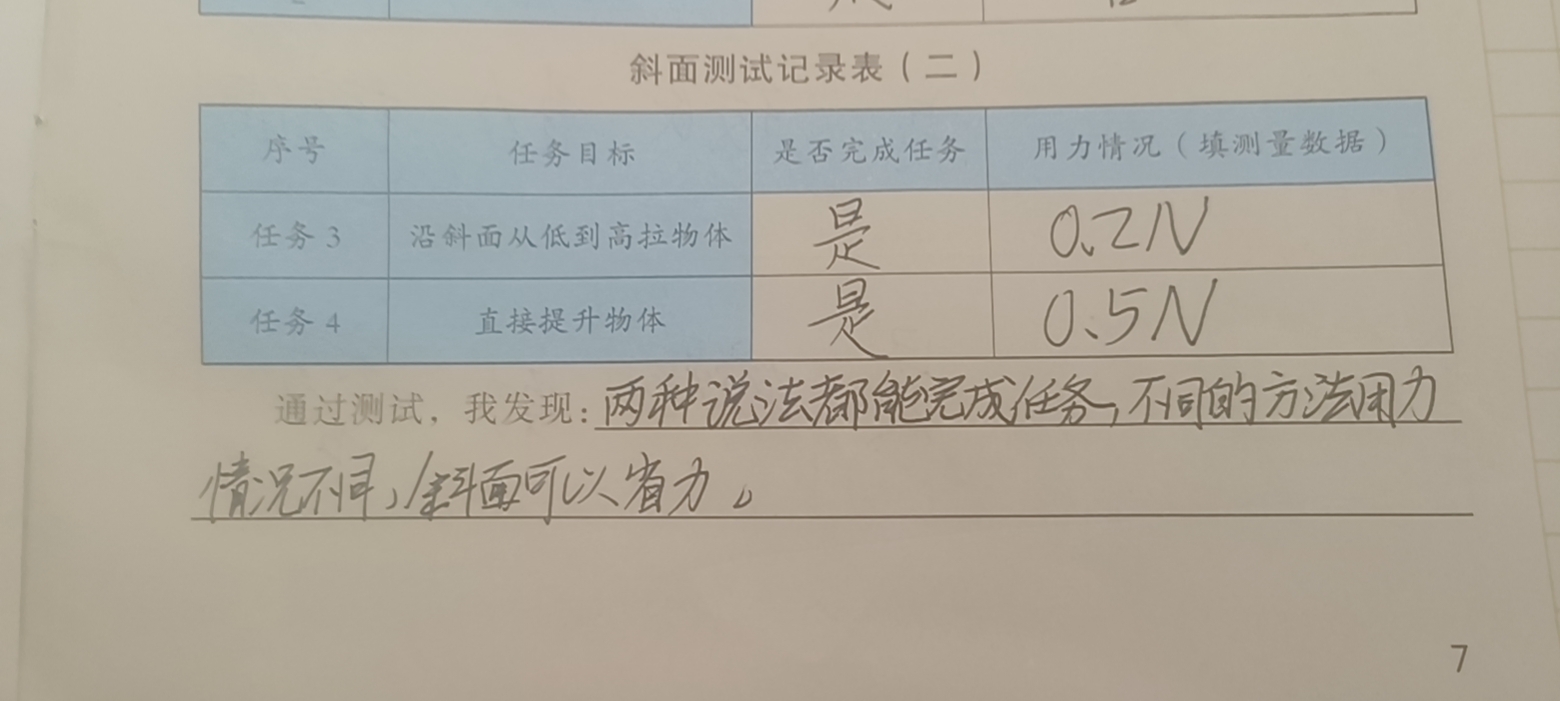 斜面测试记录表（二）
序号 任务目标 是否完成任务 用力情况（填测量数据）
任务3 沿斜面从低到高拉物体 是 0.2N
任务4 直接提升物体 是 0.5N
通过测试，我发现：两种说法都能完成任务，不同的方法用力
情况不同，斜面可以省力。
7